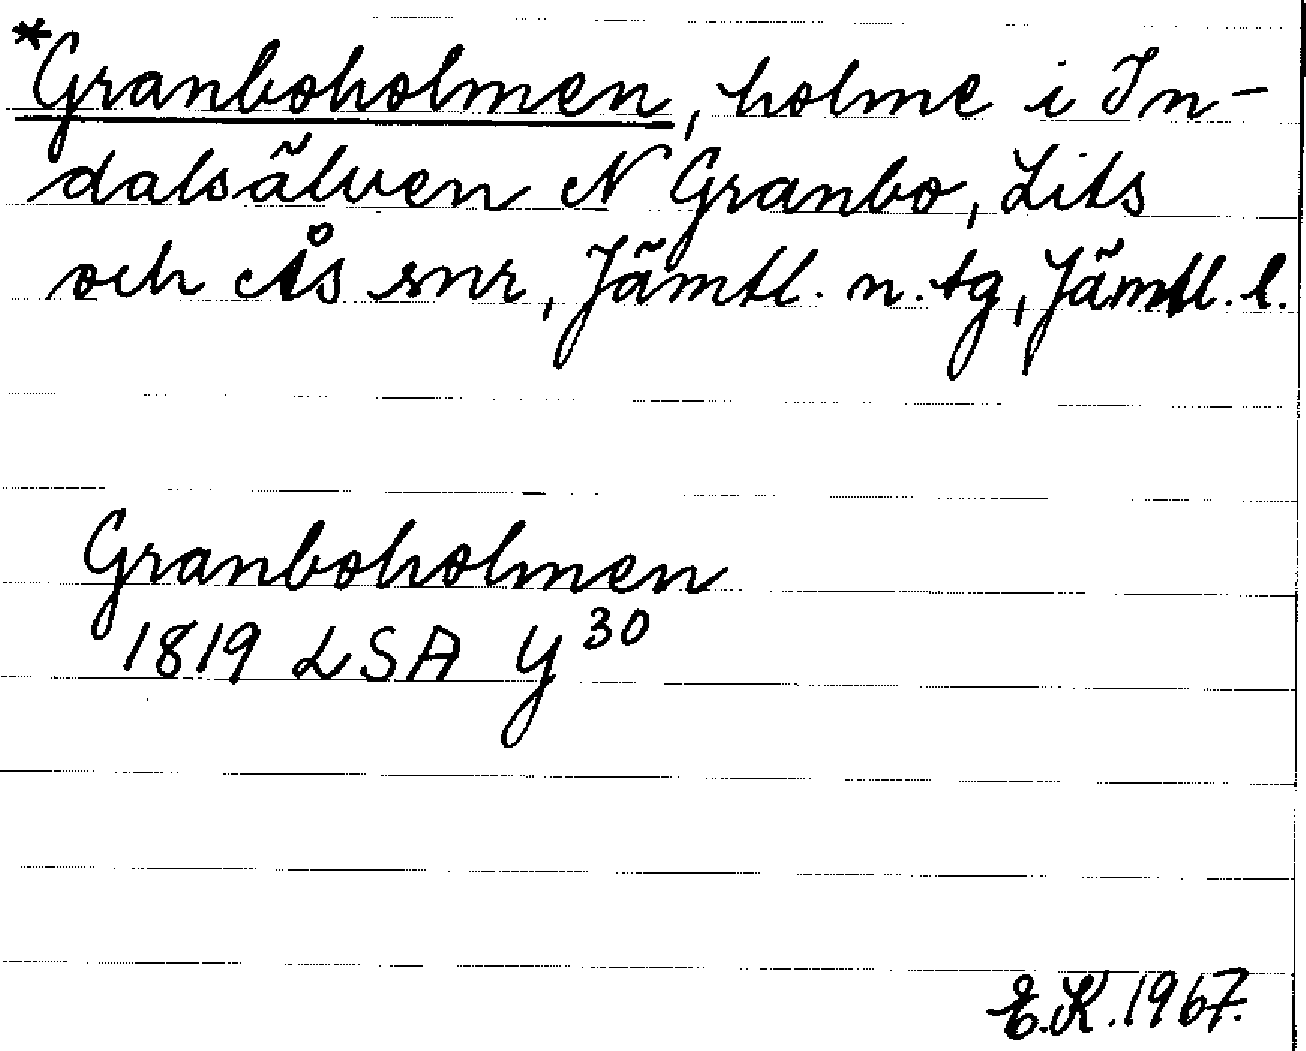 *Granboholmen, holme i In-
dalsälven N Granbo, Lits
och Ås snr, Jämtl. n. tg, Jämtl. l.
Granboholmen
1819 LSA Y30
E.K. 1967.